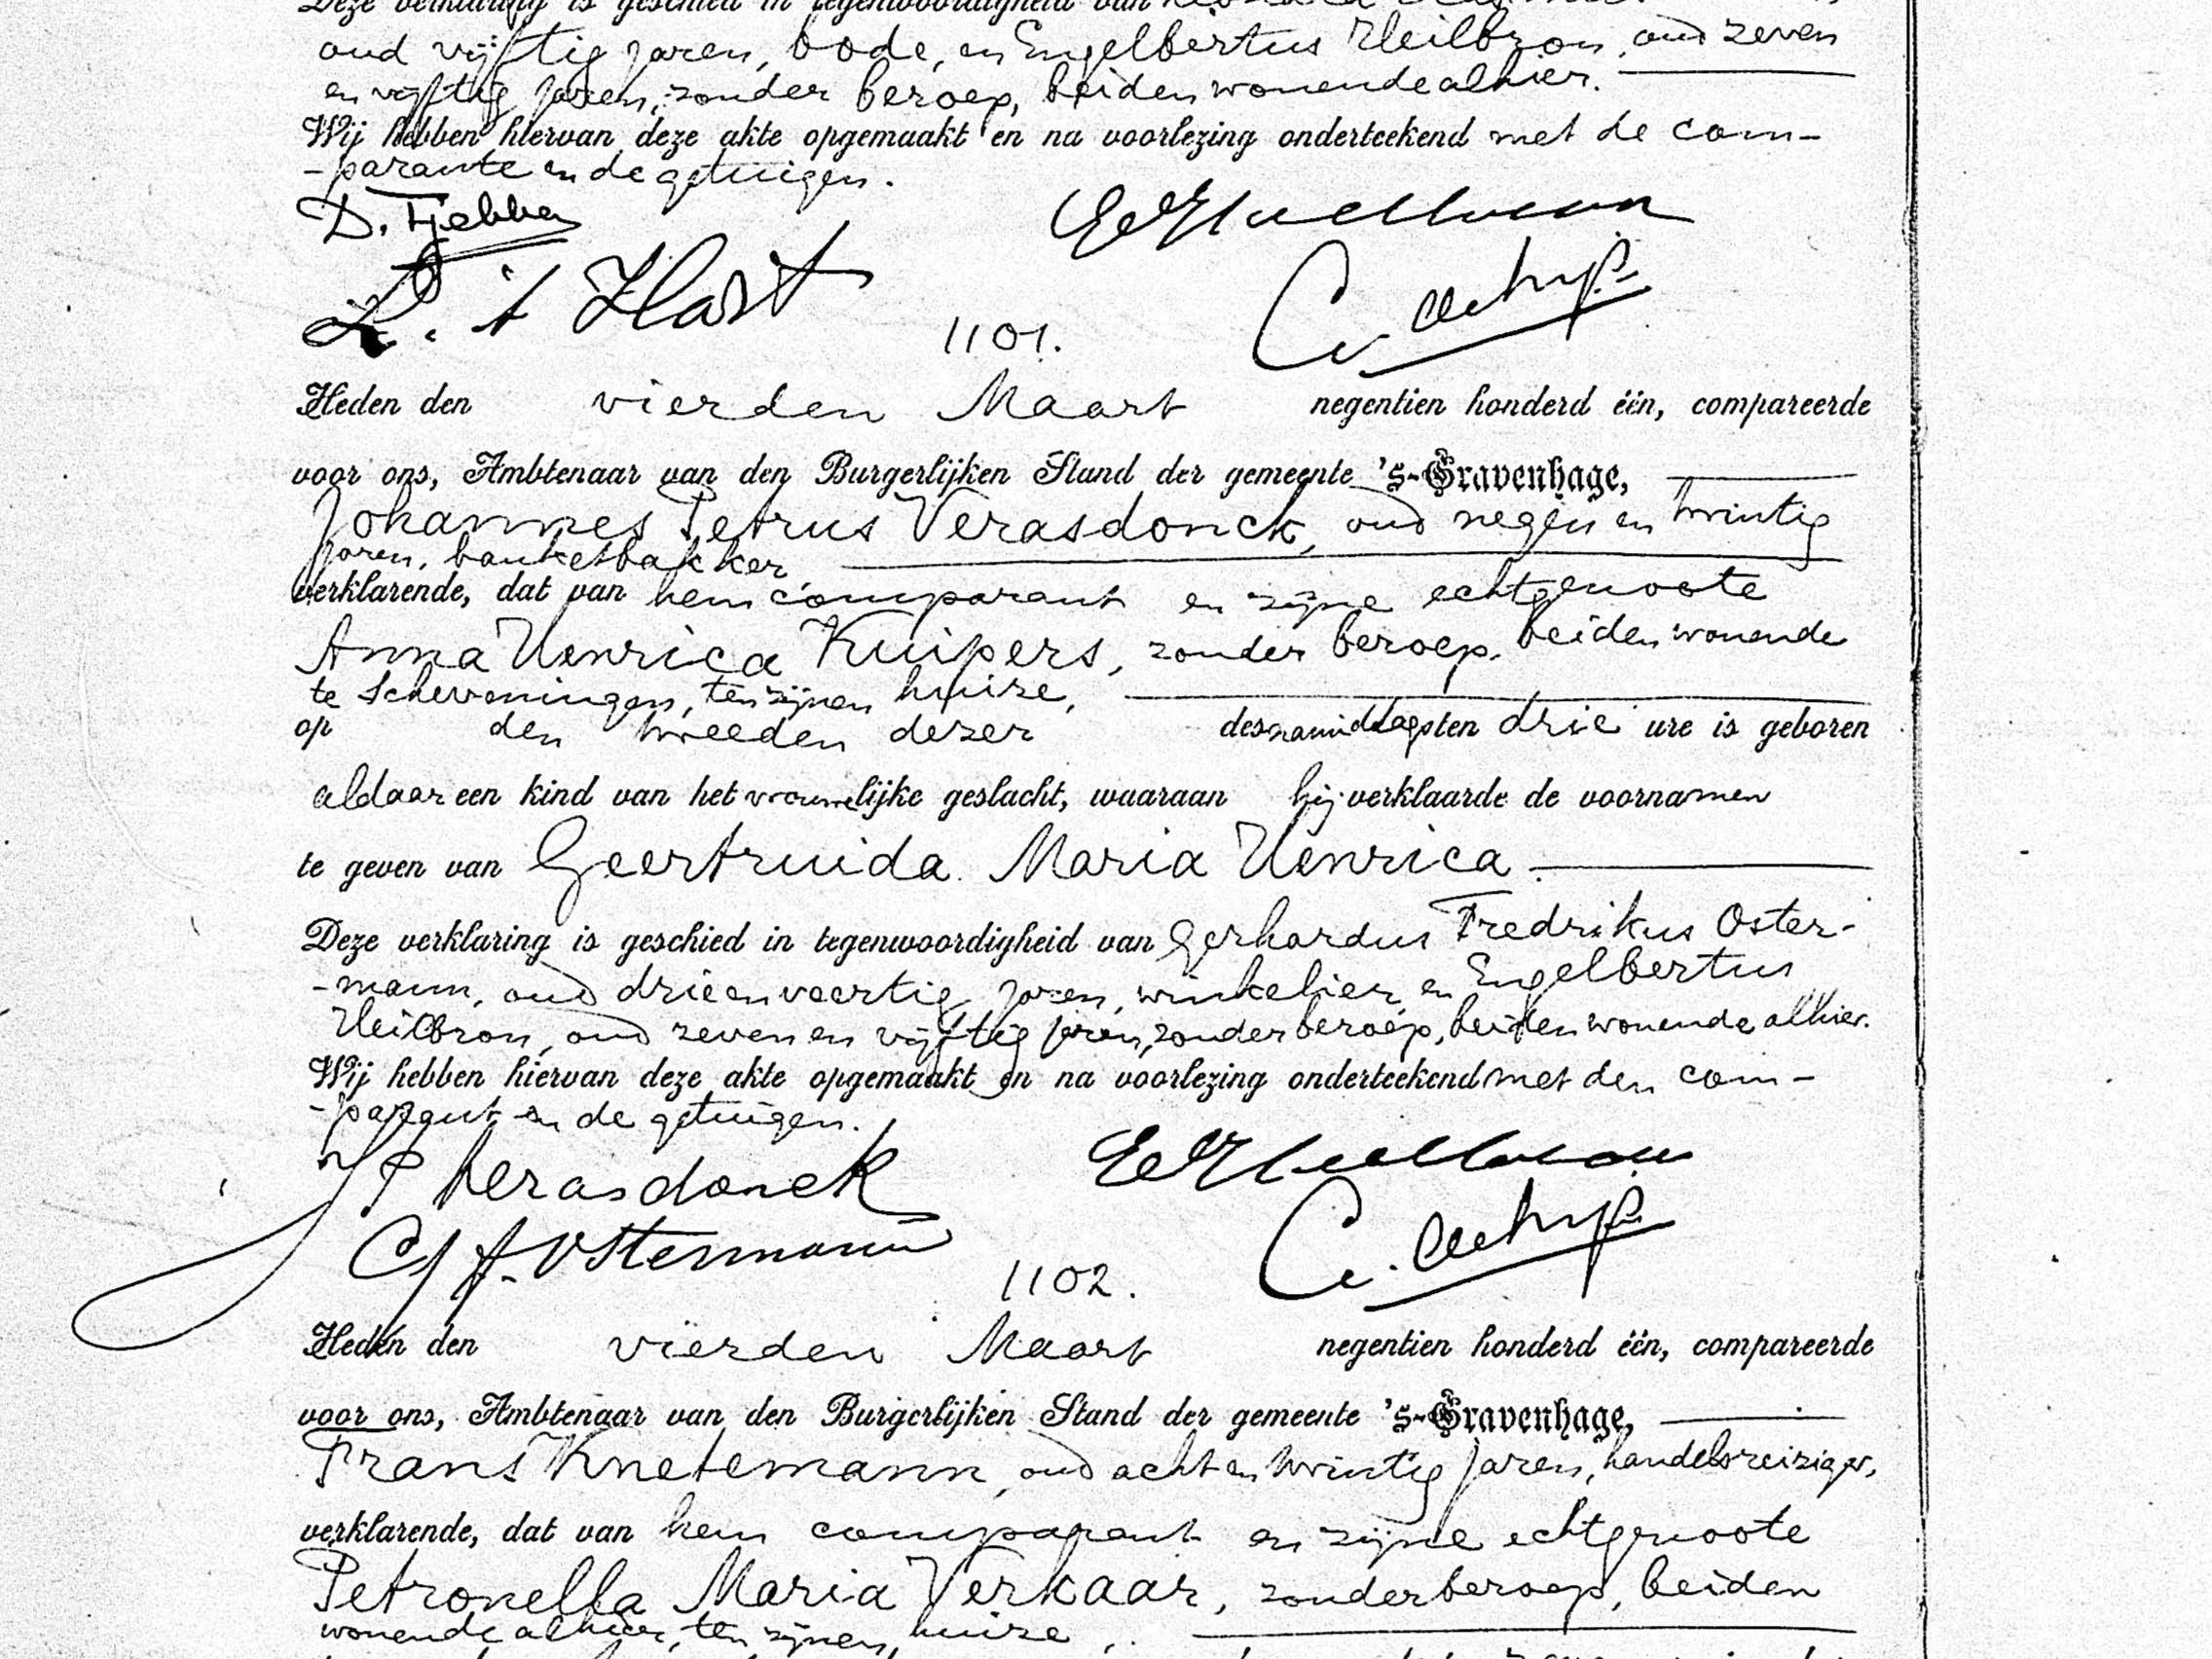 Deze verklaring is geschied in tegenwoordigheid van
oud vijftig jaren, bode, en Engelbertus Heilbron, oud zeven
en vijftig jaren, zonder beroep, beiden wonende alhier.
Wij hebben hiervan deze akte opgemaakt en na voorlezing onderteekend met de com-
-parante en de getuigen.
D. Tjebbes
L. 't Hart
1101.
Heden den vierden Maart negentien honderd één, compareerde
voor ons, Ambtenaar van den Burgerlijken Stand der gemeente 's-Gravenhage,
Johannes Petrus Verasdonck, oud negen en twintig
jaren, banketbakker,
verklarende, dat van hem comparant en zijne echtgenoote
Anna Henrica Kuipers, zonder beroep, beiden wonende
te Scheveningen, ten zijnen huize,
op den tweeden dezer des namiddags ten drie ure is geboren
aldaar een kind van het vrouwelijke geslacht, waaraan hij verklaarde de voornamen
te geven van Geertruida Maria Henrica.
Deze verklaring is geschied in tegenwoordigheid van Gerhardus Fredrikus Oster-
-mann, oud drie en veertig jaren, winkelier, en Engelbertus
Heilbron, oud zeven en vijftig jaren, zonder beroep, beiden wonende alhier.
Wij hebben hiervan deze akte opgemaakt en na voorlezing onderteekend met den com-
-parant en de getuigen.
JP Verasdonck
G f. Ostermann
1102.
Heden den vierden Maart negentien honderd één, compareerde
voor ons, Ambtenaar van den Burgerlijken Stand der gemeente 's-Gravenhage,
Frans Knetemann, oud acht en twintig jaren, handelsreiziger,
verklarende, dat van hem comparant en zijne echtgenoote
Petronella Maria Verkaar, zonder beroep, beiden
wonende alhier, ten zijnen huize,